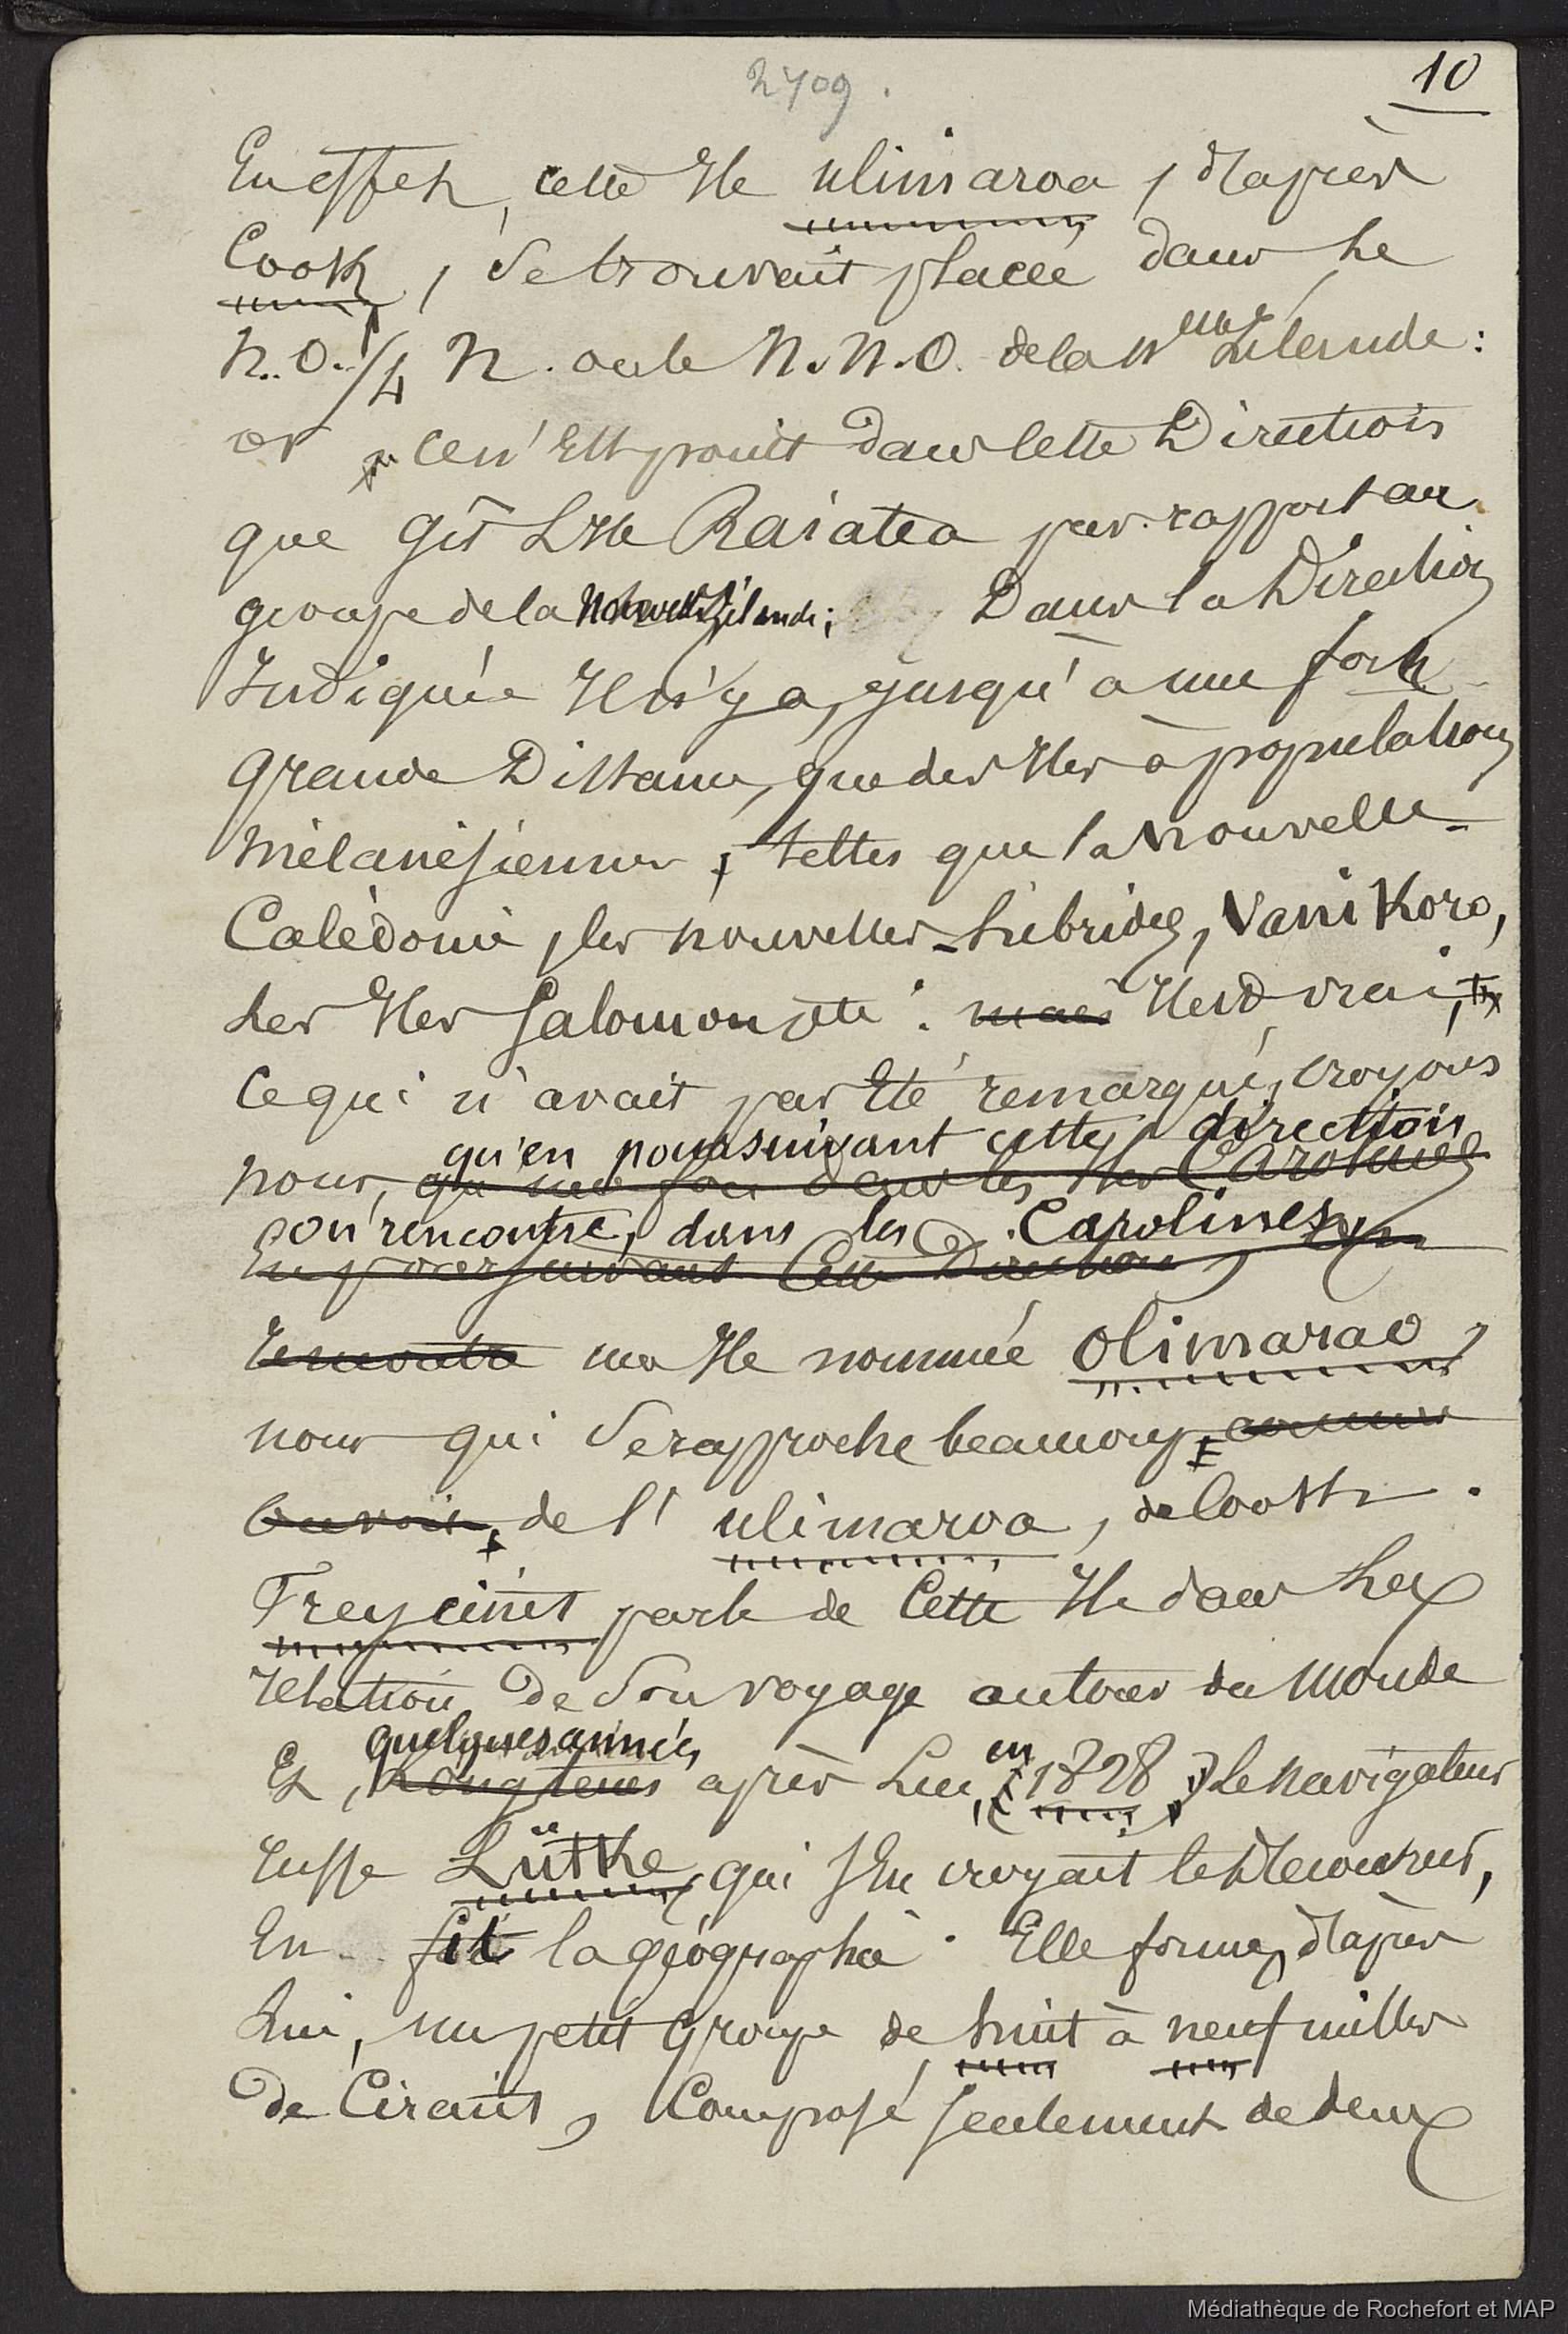 2709.
10
En effet, cette Ile ulimaroa, d'après
Cook, se trouvait placée dans le
N.O. 1/4 N. ou le N.N.O. de la Nelle Zélande :
or ce n'est point dans cette Direction
que gît L'Ile Raiatea par rapport au
groupe de la Nouvelle Zélande ; Dans la Direction
Indiquée Il n'y a, jusqu'à une forte
grande Distance, que des Iles à population
mélanésienne, telles que la Nouvelle-
Calédonie, les nouvelles-hébrides, Vanikoro,
les Iles Salomon, etc. mais Il est vrai,
ce qui n'avait pas Eté remarqué, croyons
qu'en poursuivant cette direction
nous, que dans les Iles Carolines
on rencontre, dans les Carolines,
En poursuivant Cette Direction
une Ile nommée Olimarao,
nom qui se rapproche beaucoup, comme
on voit, de l'ulimaroa, de Cook.
Freycinet parle de Cette Ile dans La
relation de son voyage autour du Monde
quelques années
Et, Longtems après Lui, en (1828) le navigateur
russe Lütke, qui s'en croyait le découvreur,
En fit la géographie. Elle forme, d'après
Lui, un petit Groupe de huit à neuf milles
de Circuit, Composé seulement de deux
Médiathèque de Rochefort et MAP